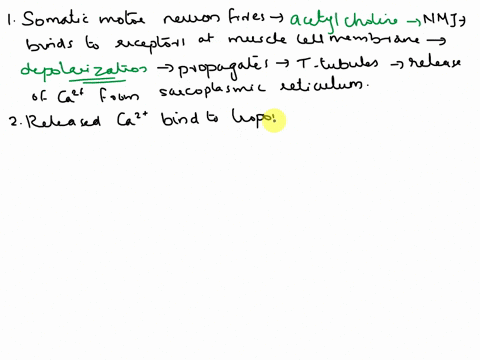 1. Somatic motor neuron fires → acetyl choline → NMJ →
binds to receptors at muscle cell membrane →
depolarization → propagates → T-tubules → release
of Ca2+ from sarcoplasmic reticulum.
2. Released Ca2+ bind to tropo